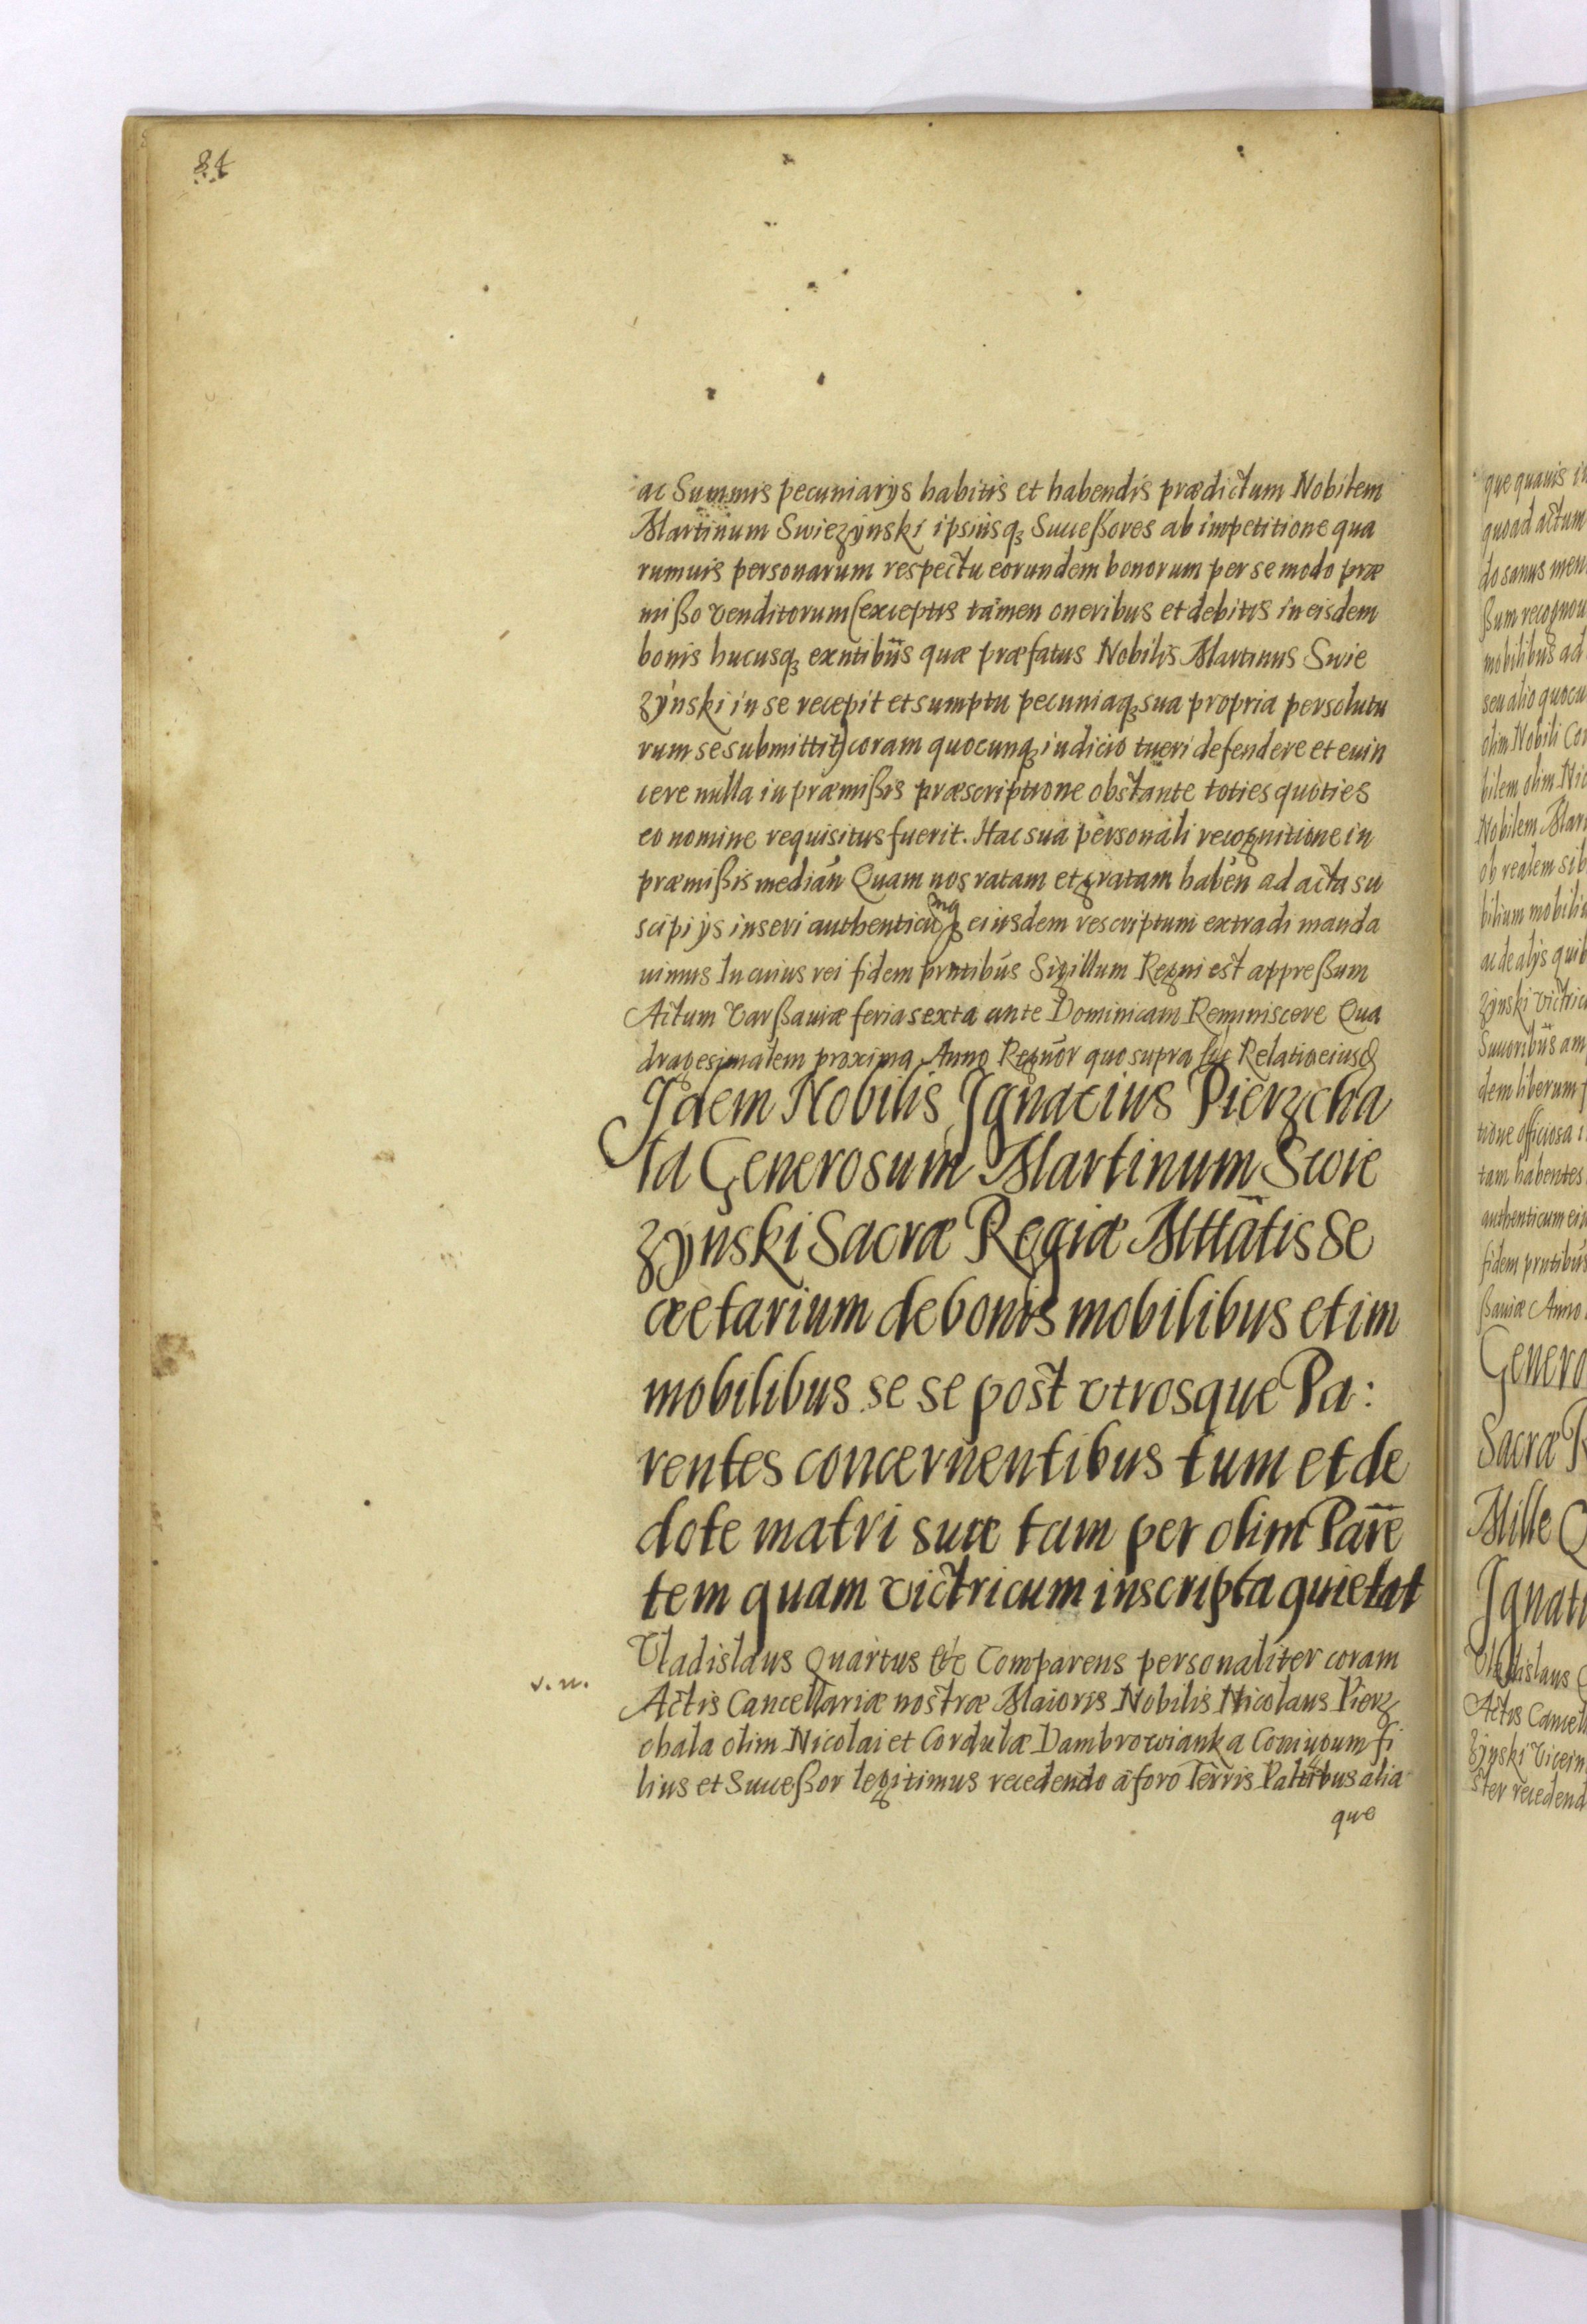 84
ac Summis pecuniarys habitis et habendis prædictum Nobilem
Martinum Swiezÿnski ipsiusq; Suceßores ab impetitione qua
rumuis personarum respectu eorundem bonorum per se modo præ
mißo venditorum (exceptis tamen oneribus et debitis in eisdem
bonis hucusq; exntibus quæ præfatus Nobilis Martinus Swie
zÿnski in se recepit et sumptu pecuniaq; sua propria persolutu
rum se submittit) coram quocunq; iudicio tueri defendere et euin
cere nulla in præmißis præscriptione obstante toties quoties
eo nomine requisitus fuerit. Hac sua personali recognitione in
præmißis median Quam nos ratam et gratam haben ad acta su
scipi ijs inseri authenticumq; eiusdem rescriptum extradi manda
uimus In cuius rei fidem prntibus Sigillum Regni est appreßum
Actum Varßauiæ feria sexta ante Dominicam Reminiscere Qua
dragesimalem proxima Anno Regnor quo supra Relatio eiusd
Idem Nobilis Ignatius Pierzcha
la Generosum Martinum Swie
zÿnski Sacræ Regiæ Mttatis Se
cretarium de bonis mobilibus et im
mobilibus se se post vtrosque Pa:
rentes concernentibus tum et de
dote matri suæ tam per olim Pare
tem quam victricum inscripta quietat
Vladislaus Quartus &c Comparens personaliter coram
v. n.
Actis Cancellariæ nostræ Maioris Nobilis Nicolaus Pierz
chala olim Nicolai et Cordulæ Dambrowianka Coniugum fi
lius et Suceßor legitimus recedendo a foro Terris Paltibus alia
que
que quauis in
quoad actum
do sanus men
ßum recognou
mobilibus ad
seu alio quocu
olim Nobili Cor
bilem olim Nic
Nobilem Mar
ob realem sib
bilium mobiliu
ac de alijs quib
zÿnski victric
Suceoribus am
dem liberum
tione officiosa i
tam habentes
authenticum eiu
fidem prntibus
ßauiæ Anno
Genero
Sacræ R
Mille Q
Ignati
Vladislaus Q
Actis Cancell
zÿnski
ster recedend